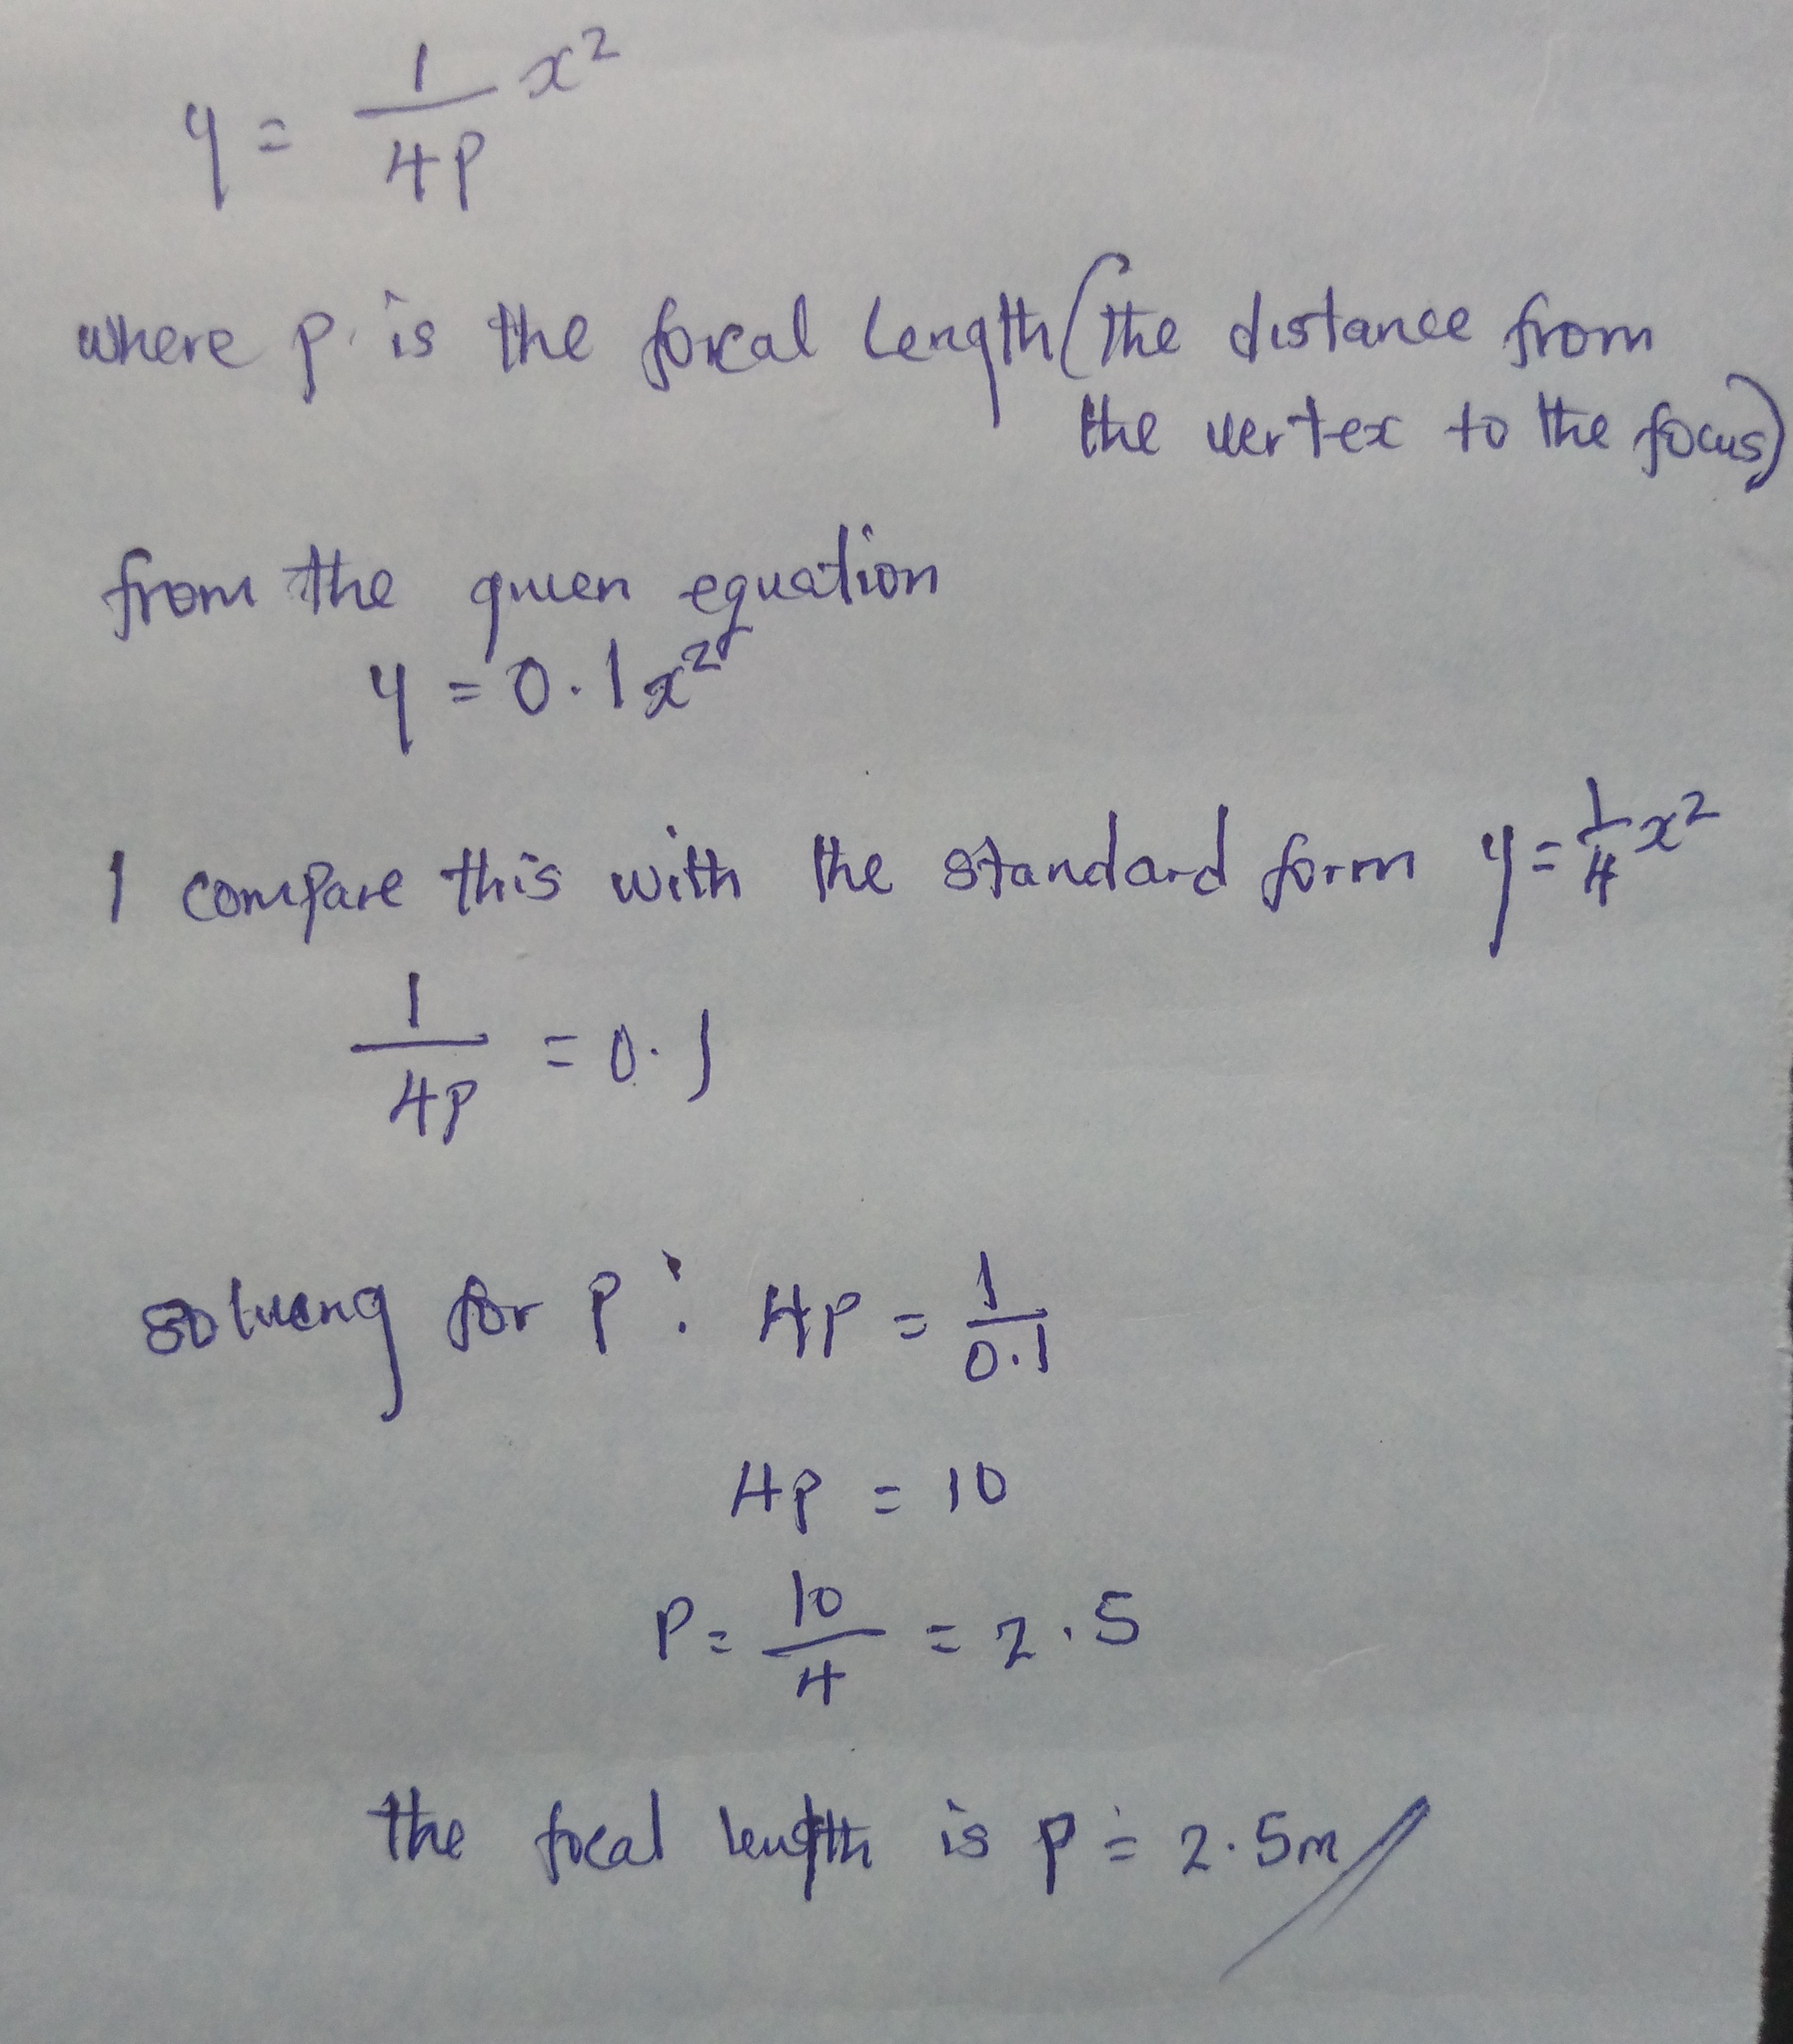 y = 1/4P x²
where p is the focal length (the distance from
the vertex to the focus)
from the given equation
y = 0.1x²
I compare this with the standard form y = 1/4 x²
1/4P = 0.1
solving for P : 4P = 1/0.1
4P = 10
P = 10/4 = 2.5
the focal length is p = 2.5m